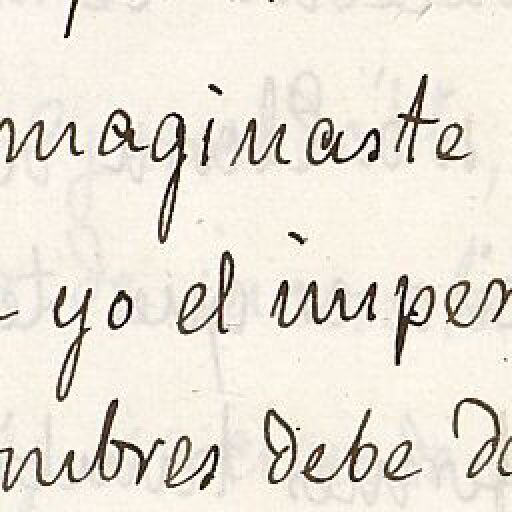 maginaste
yo el imper
mbres debe do